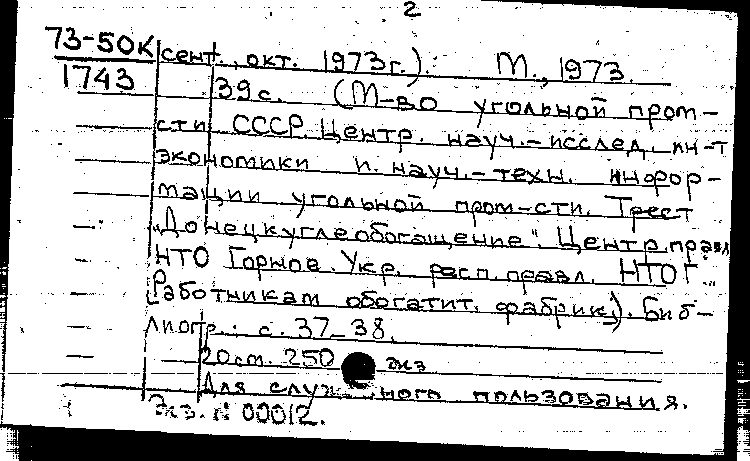 2
73-50к сент., окт. 1973г.). М., 1973.
1743 39с. (М-во угольной пром-
сти СССР. Центр. науч.-исслед. ин-т
экономики и науч.-техн. инфор-
мации угольной пром-сти. Трест
"Донецкуглеобогащение". Центр. правл.
НТО Горное. Укр. респ. правл. НТОГ...
Работникам обогатит. фабрик). Биб-
лиогр.: с. 37-38.
20см. 250 экз
Для служебного пользования.
Экз. № 00012.